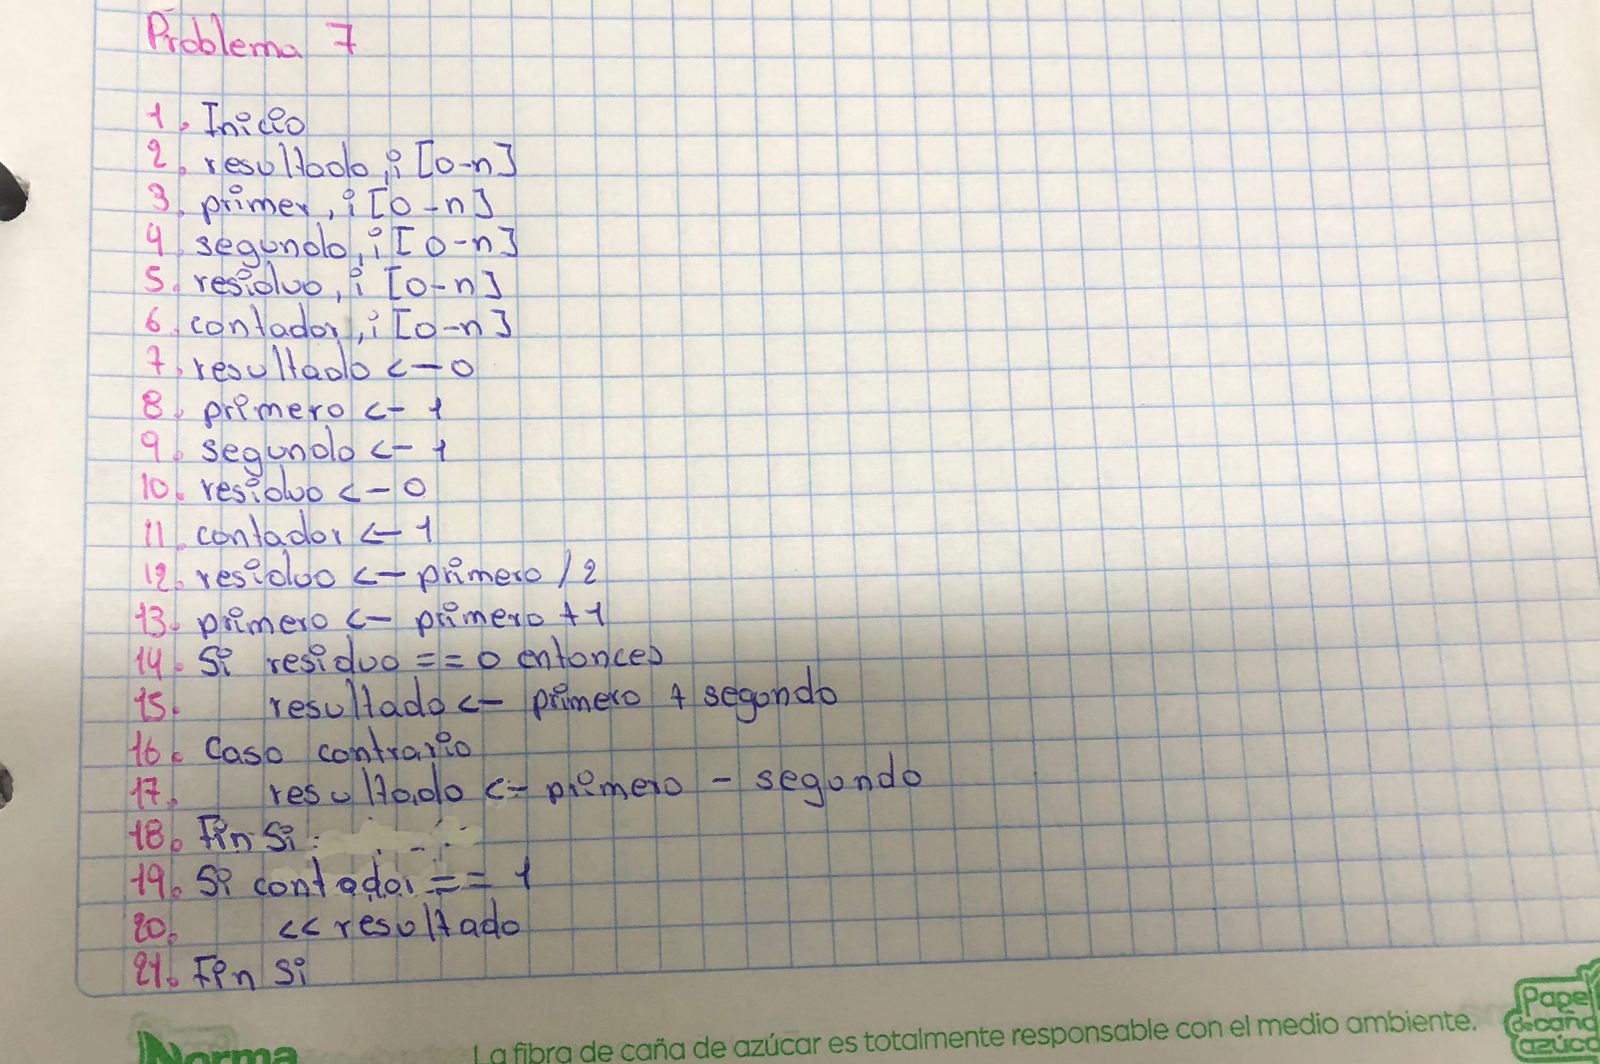 Problema 7
1. Inicio
2. resultado, i [0-n]
3. primer, i [0-n]
4. segundo, i [0-n]
5. residuo, i [0-n]
6. contador, i [0-n]
7. resultado <- 0
8. primero <- 1
9. segundo <- 1
10. residuo <- 0
11. contador <- 1
12. residuo <- primero / 2
13. primero <- primero + 1
14. Si residuo == 0 entonces
15. resultado <- primero + segundo
16. Caso contrario
17. resultado <- primero - segundo
18. Fin Si
19. Si contador == 1
20. << resultado
21. Fin Si
Norma
La fibra de caña de azúcar es totalmente responsable con el medio ambiente.
Papel
de caña
azúca